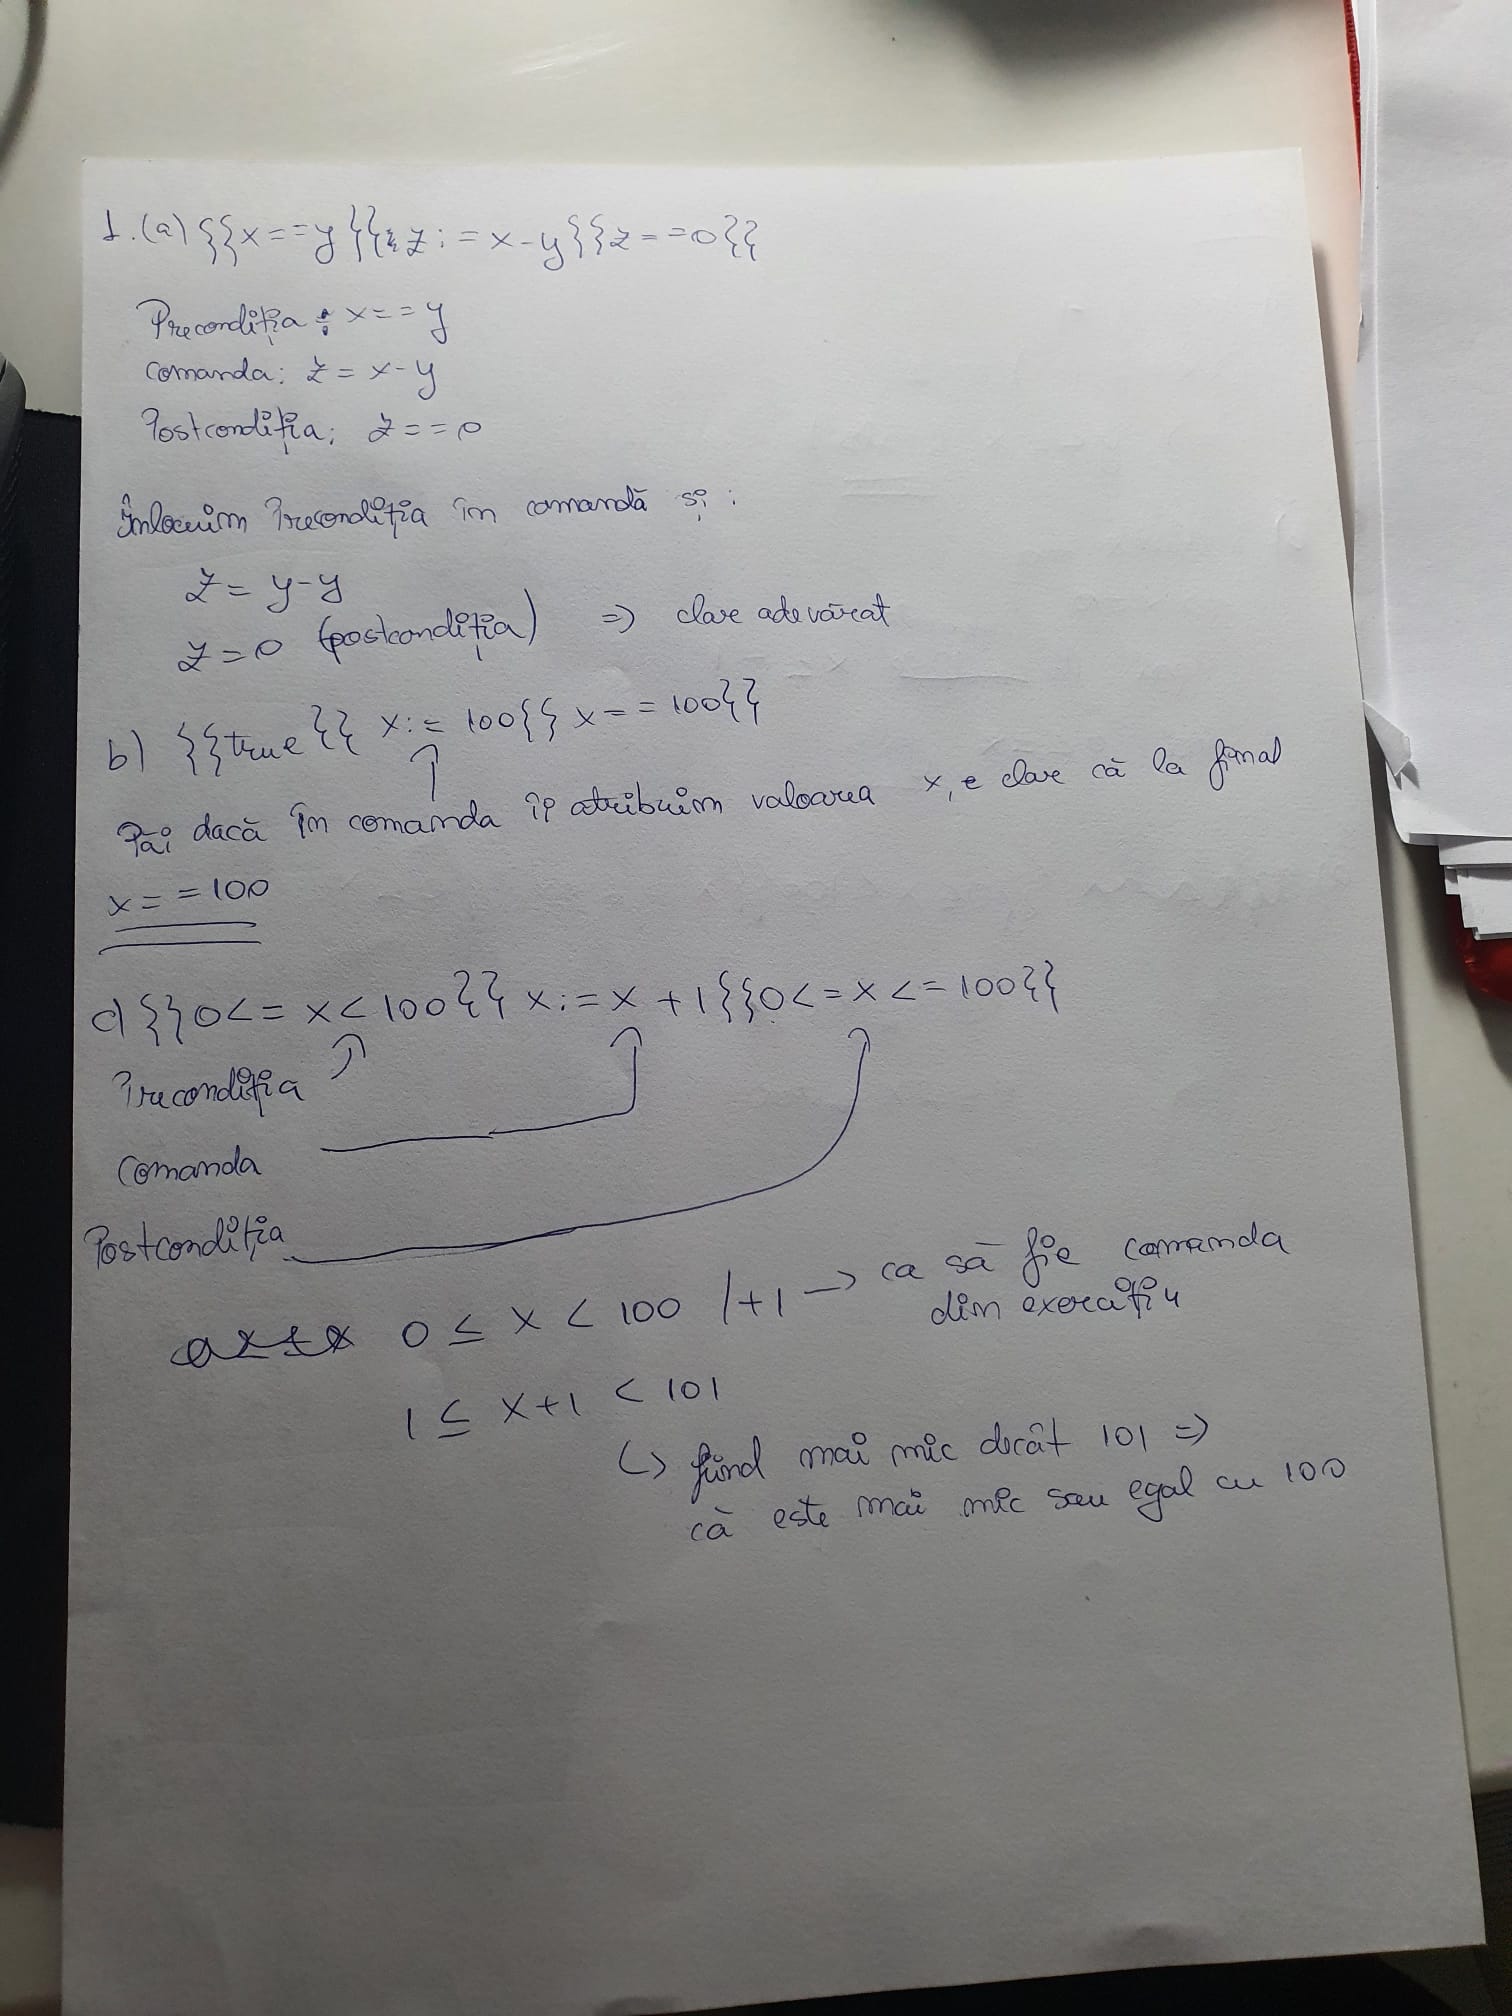 1.(a) {{x==y}} z:=x-y}}{z==0}}
Precondiția: x==y
Comanda: z=x-y
Postcondiția: z==0
Înlocuim Precondiția în comandă și:
z=y-y
z=0 (postcondiția) => clar adevărat
b) {{true}} x:=100{{x==100}}
Păi dacă în comanda îi atribuim valoarea x, e clar că la final
x==100
c) {{0<=x<100}} x:=x+1{{0<=x<=100}}
Precondiția
Comanda
Postcondiția
0≤x<100 /+1 → ca să fie comanda
din exercițiu
1≤x+1<101
↳ fiind mai mic decât 101 =>
că este mai mic sau egal cu 100